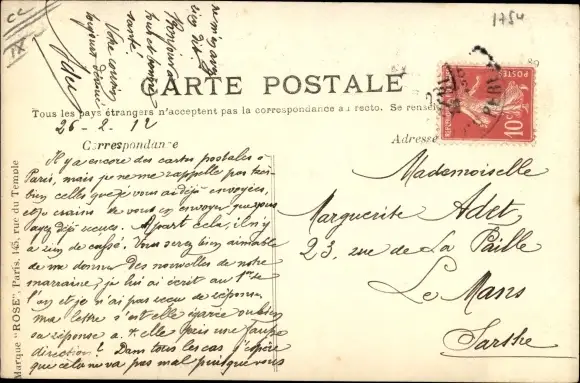 CC
IX
1754
CARTE POSTALE
Tous les pays étrangers n'acceptent pas la correspondance au recto. Se rensei
26-2.12
Correspondance
Adresse
Il y a encore des cartes postales à
Paris, mais je ne me rappelle pas très
bien celles que je vous ai déjà envoyées,
et je crains de vous en envoyer que vous
ayez déjà reçues. A part cela, il n'y
a rien de cassé. Vous serez bien aimable
de me donner des nouvelles de notre
marraine, je lui ai écrit au 1er de
l'an et je n'ai pas reçu de réponse.
ma lettre s'est elle égarée ou bien
sa réponse a-t-elle pris une fausse
direction? Dans tous les cas j'espère
que cela ne va pas mal puisque vous
ne m'ayez
rien dit.
Bonjour à
tous et bonne
santé.
Votre cousin
toujours dévoué
Adet
Mademoiselle
Marguerite Adet
23, rue de La Paille
Le Mans
Sarthe
Marque "ROSE", Paris, 145, rue du Temple
RÉPUBLIQUE FRANÇAISE
POSTES
10c